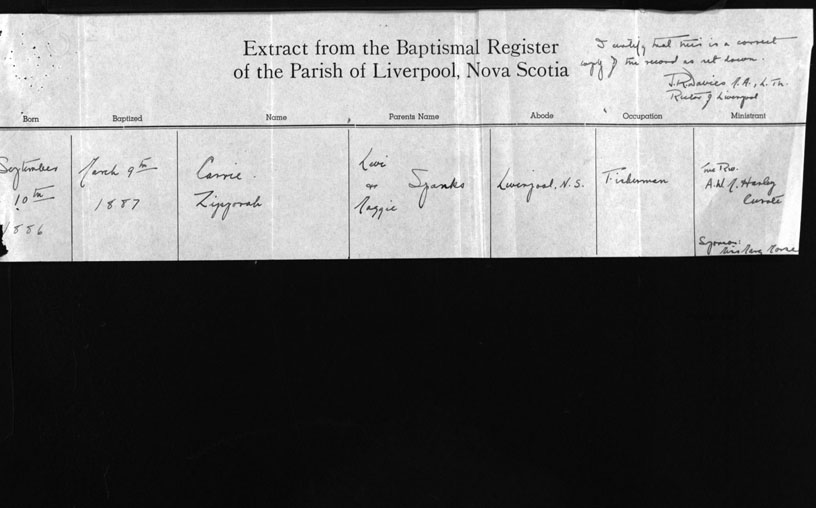 Extract from the Baptismal Register
of the Parish of Liverpool, Nova Scotia
I certify that this is a correct
copy of the record as set down.
J. R. Davies B.A., L. Th.
Rector of Liverpool
Born Baptized Name Parents Name Abode Occupation Ministrant
September
10th
1886
March 9th
1887
Carrie
Zipporah
Levi
or
Maggie
Spanks
Liverpool, N.S.
Fisherman
The Rev.
A.W. Harley
Curate
Sponsor: